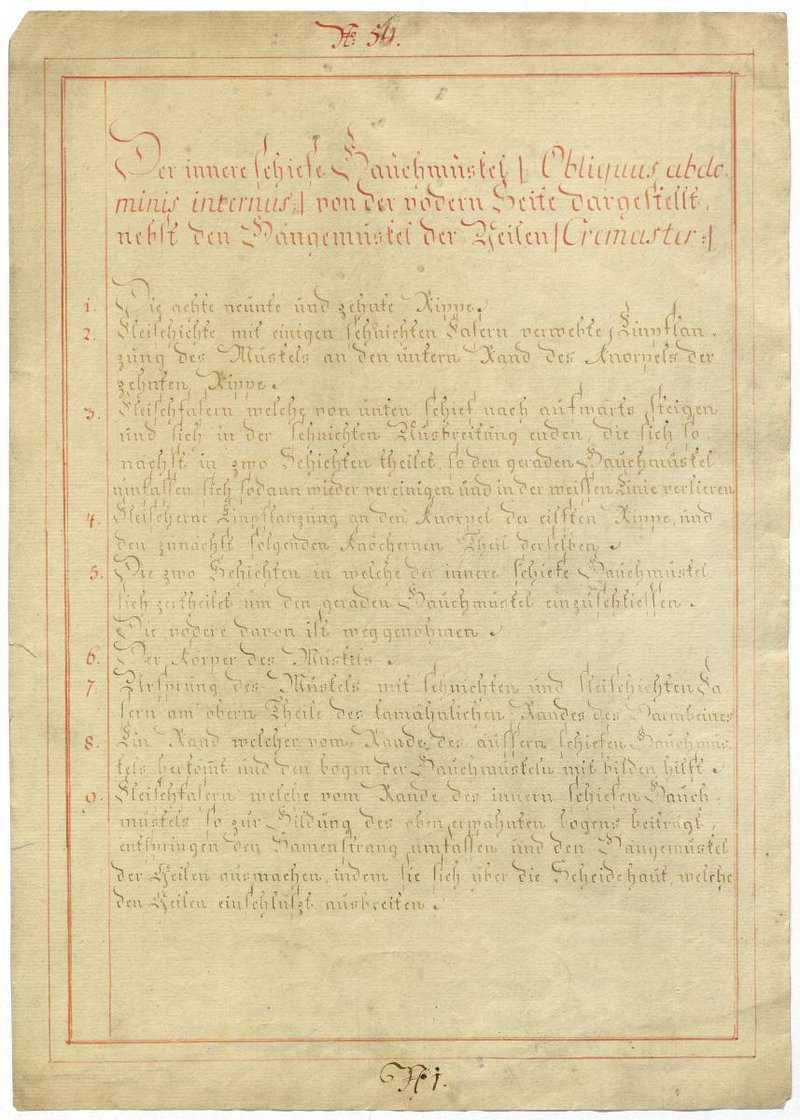 No. 54.
Der innere schiefe Bauchmuskel |: Obliquus abdo-
minis internus :| von der vodern Seite dargestellt,
nebst den Hangemuskel der Geilen |: Cremaster :|
1. Die achte neunte und zehnte Rippe.
2. Fleischichte mit einigen sehnichten Fasern verwebte Einpflan-
zung des Muskels an den untern Rand des Knorpels der
zehnten Rippe.
3. Fleischfasern welche von unten schief nach aufwärts steigen
und sich in der sehnichten Ausbreitung enden, die sich so
nachst in zwo Schichten theilet, so den geraden Bauchmuskel
umfassen sich sodann wieder vereinigen und in der weissen Linie verlieren
4. Fleischerne Einpflanzung an den Knorpel der eilften Rippe, und
den zunachst folgenden Knöchernen Theil derselben.
5. Die zwo Schichten in welche der innere schiefe Bauchmuskel
sich zertheilet um den geraden Bauchmuskel einzuschliessen.
Die vodere davon ist weggenohmen.
6. Der Körper des Muskels.
7. Ursprung des Muskels mit sehnichten und fleischichten Fa
sern am obern Theile des kamähnlichen Randes des Darmbeines
8. Ein Rand welcher vom Rande des äussern schiefen Bauchmus-
kels herkomt und den bogen der Bauchmuskeln mit bilden hilft.
9. Fleischfasern welche vom Rande des innern schiefen Bauch-
muskels so zur Bildung des oben erwahnten bogens beitragt,
entspringen den Samenstrang umfassen und den Hangemuskel
der Geilen ausmachen, indem sie sich über die Scheidehaut, welche
den Geilen einschlüszt ausbreiten.
No. 1.